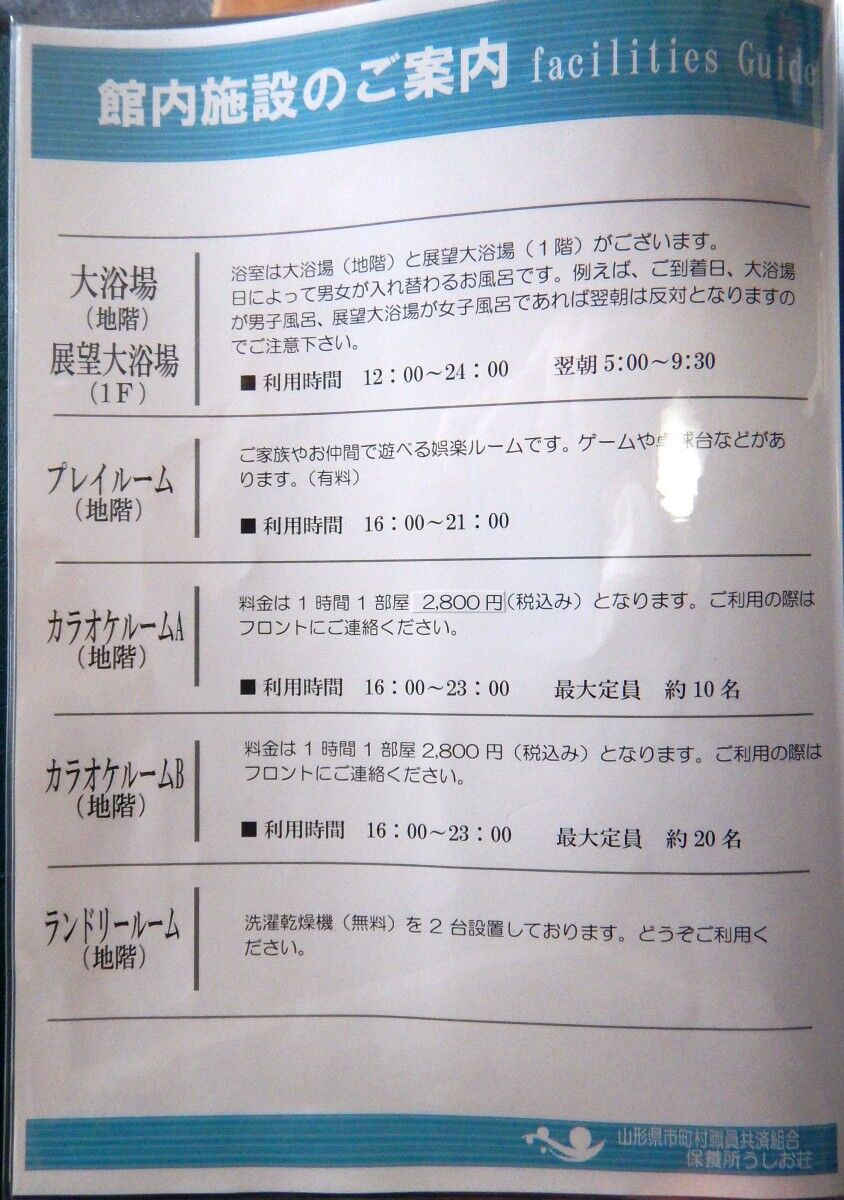 館内施設のご案内 facilities Guide
大浴場
（地階）
展望大浴場
（1F）
浴室は大浴場（地階）と展望大浴場（１階）がございます。
日によって男女が入れ替わるお風呂です。例えば、ご到着日、大浴場
が男子風呂、展望大浴場が女子風呂であれば翌朝は反対となりますの
でご注意下さい。
■ 利用時間 12：00～24：00 翌朝 5:00～9:30
プレイルーム
（地階）
ご家族やお仲間で遊べる娯楽ルームです。ゲームや卓球台などがあ
ります。（有料）
■ 利用時間 16：00～21：00
カラオケルームA
（地階）
料金は 1 時間 1 部屋 2,800 円（税込み）となります。ご利用の際は
フロントにご連絡ください。
■ 利用時間 16：00～23：00 最大定員 約 10 名
カラオケルームB
（地階）
料金は 1 時間 1 部屋 2,800 円（税込み）となります。ご利用の際は
フロントにご連絡ください。
■ 利用時間 16：00～23：00 最大定員 約 20 名
ランドリールーム
（地階）
洗濯乾燥機（無料）を 2 台設置しております。どうぞご利用く
ださい。
山形県市町村職員共済組合
保養所うしお荘